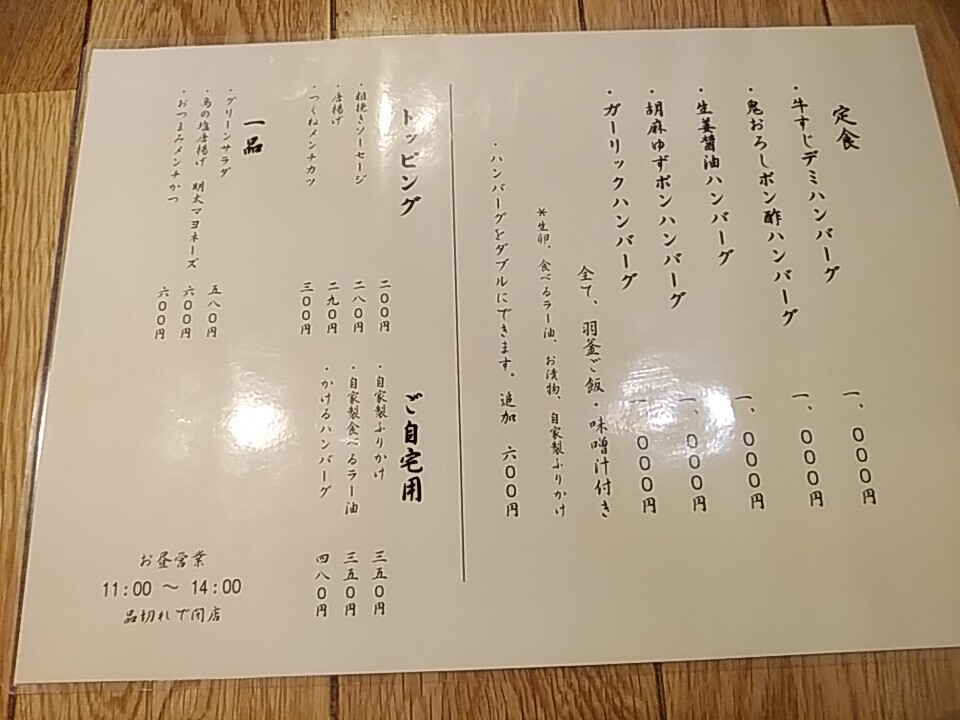 定食
・牛すじデミハンバーグ 一、〇〇〇円
・鬼おろしポン酢ハンバーグ 一、〇〇〇円
・生姜醤油ハンバーグ 一、〇〇〇円
・胡麻ゆずポンハンバーグ 一、〇〇〇円
・ガーリックハンバーグ 一、〇〇〇円
全て、羽釜ご飯・味噌汁付き
*生卵、食べるラー油、お漬物、自家製ふりかけ
・ハンバーグをダブルにできます。 追加 六〇〇円
トッピング
・粗挽きソーセージ 二〇〇円
・唐揚げ 二八〇円
・つくねメンチカツ 二九〇円
三〇〇円
一品
・グリーンサラダ 五八〇円
・鳥の塩唐揚げ 明太マヨネーズ 六〇〇円
・おつまみメンチかつ 六〇〇円
ご自宅用
・自家製ふりかけ 三五〇円
・自家製食べるラー油 三五〇円
・かけるハンバーグ 四八〇円
お昼営業
11:00 ～ 14:00
品切れで閉店